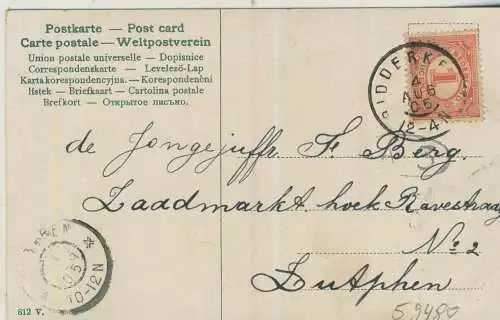 Postkarte — Post card
Carte postale — Weltpostverein
Union postale universelle — Dopisnice
Correspondenzkarte — Levelező-Lap
Karta korespondencyjna. — Korespondenční
lístek — Briefkaart — Cartolina postale
Brefkort — Открытое письмо.
RIDDERKE
4
AUG
05
12-4N
1
de Jongejuffr. F. Berg.
Zaadmarkt hoek Ravestraag
No 2
Zutphen
10-12N
5948
612 V.